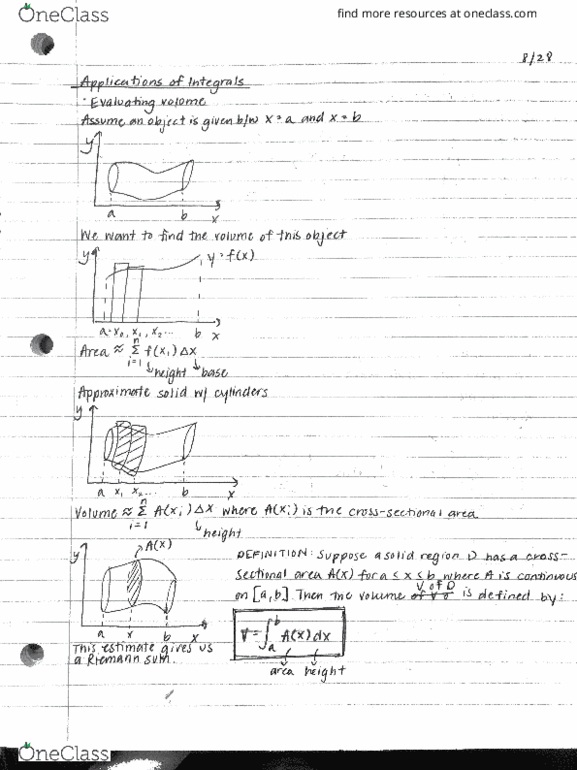 OneClass
find more resources at oneclass.com
8/28
Applications of Integrals
· Evaluating volume
Assume an object is given b/w x = a and x = b
y
a b x
We want to find the volume of this object
y
y = f(x)
a = x₀, x₁, x₂... b x
Area ≈ n Σ i=1 f(xᵢ) Δx
↳ height ↳ base
Approximate solid w/ cylinders
y
a x₁ x₂... b x
Volume ≈ n Σ i=1 A(xᵢ) Δx where A(xᵢ) is the cross-sectional area
↳ height
y
A(x)
a x b x
This estimate gives us
a Riemann sum.
DEFINITION: Suppose a solid region D has a cross-
sectional area A(x) for a ≤ x ≤ b where A is continuous
on [a,b]. Then the volume V of D is defined by:
V = ∫ₐᵇ A(x) dx
area height
OneClass